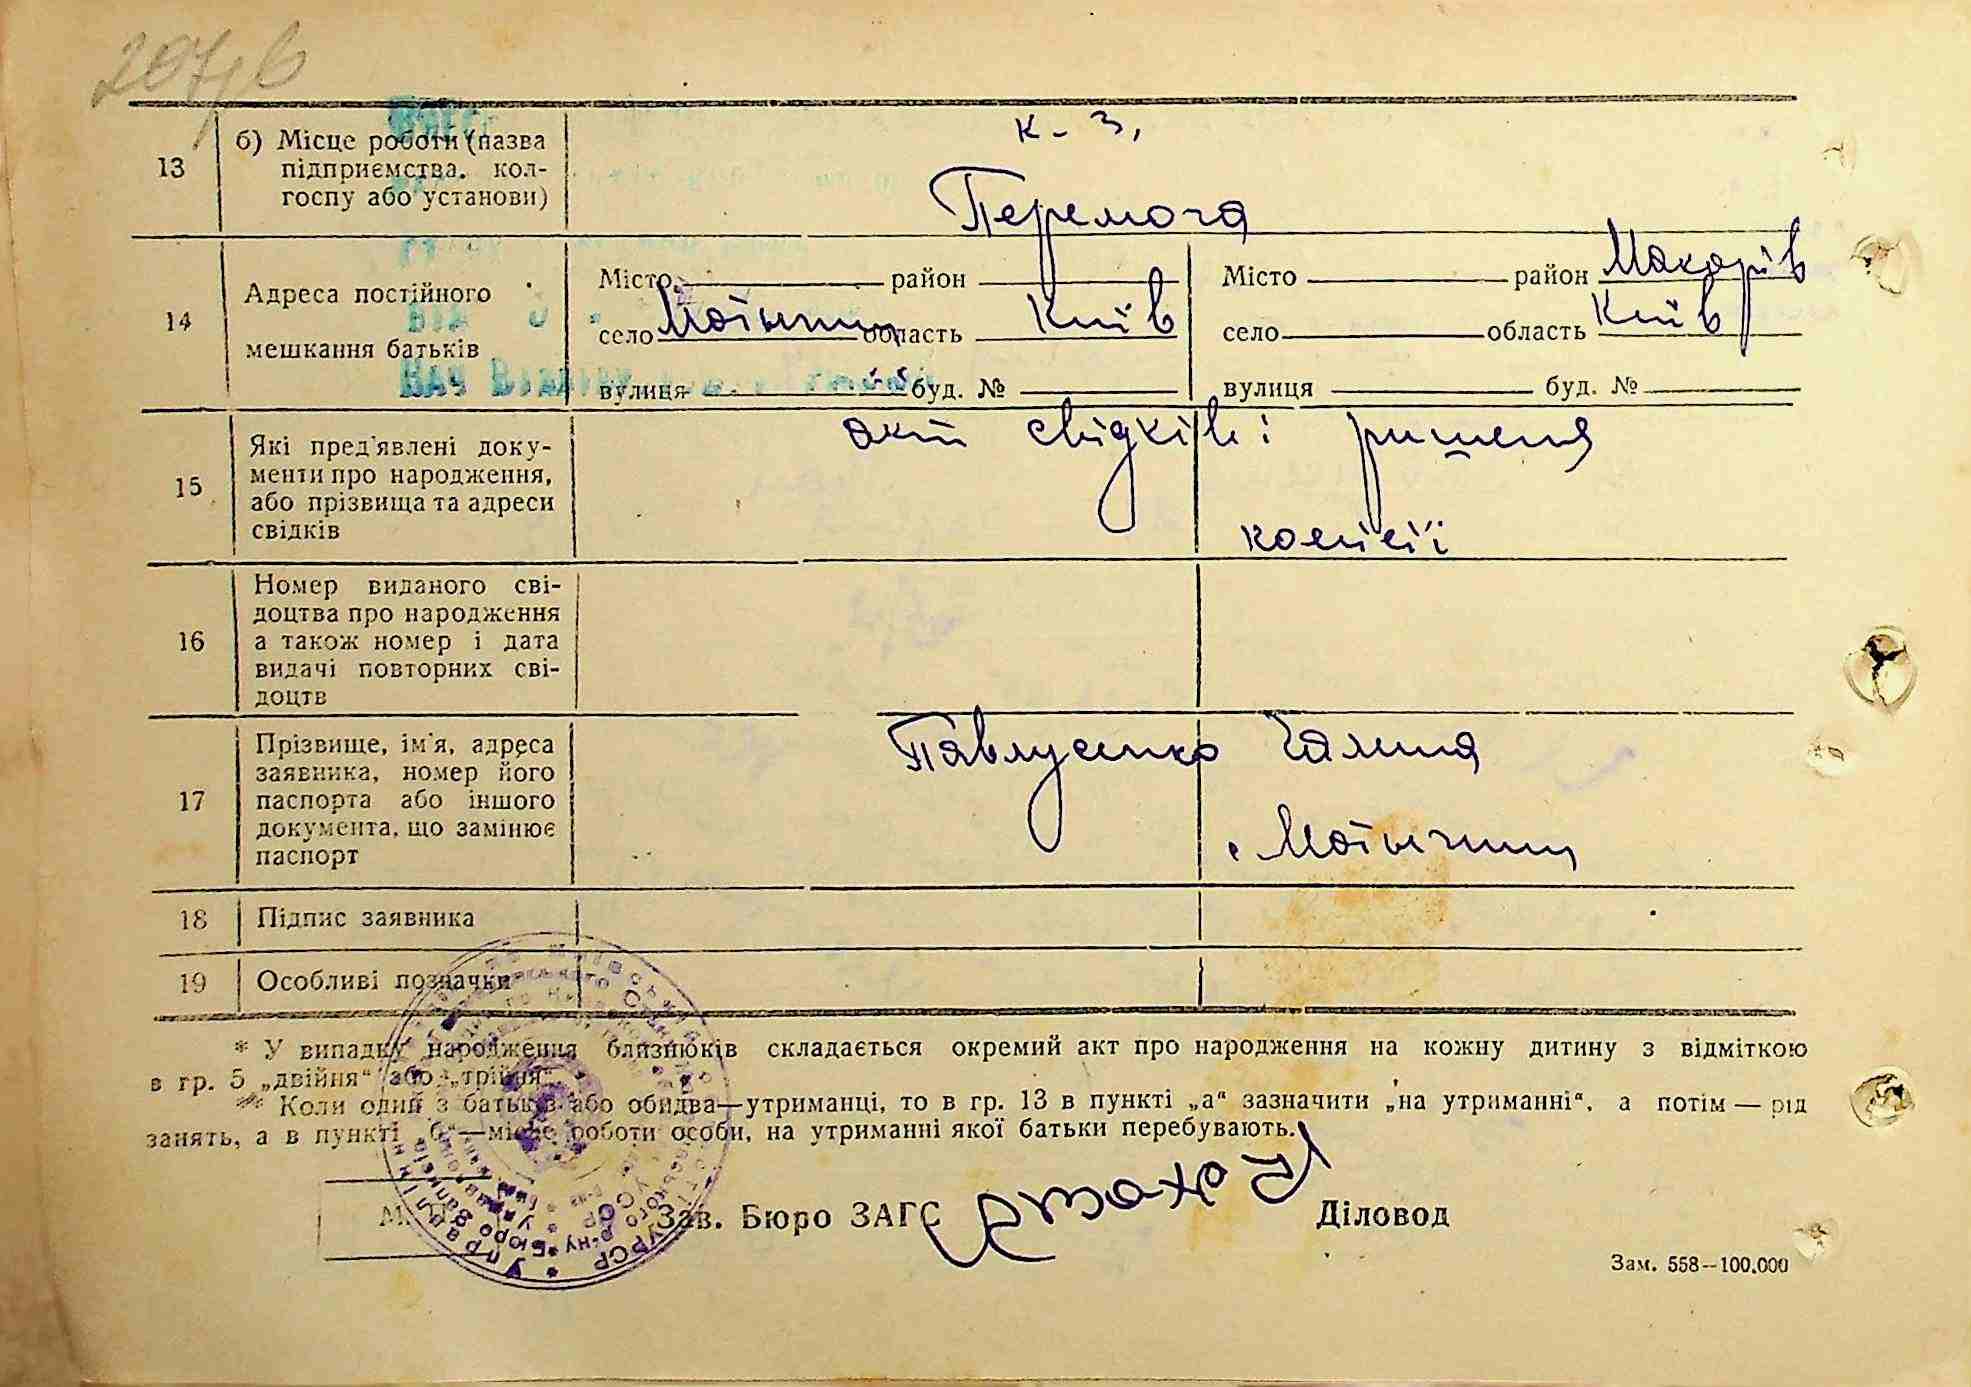 207зв
13
б) Місце роботи (назва
підприємства. кол-
госпу або установи)
к-з,
Перемога
14
Адреса постійного
мешкання батьків
Місто район
село Мотыжин область Київ
вулиця буд. №
Місто район Макарів
село область Київ
вулиця буд. №
15
Які пред'явлені доку-
менти про народження,
або прізвища та адреси
свідків
акт свідків і ришення
комісії
16
Номер виданого сві-
доцтва про народження
а також номер і дата
видачі повторних сві-
доцтв
17
Прізвище, ім'я, адреса
заявника, номер його
паспорта або іншого
документа, що замінює
паспорт
Павлусенко Галина
с Мотыжин
18
Підпис заявника
19
Особливі позначки
* У випадку народження близнюків складається окремий акт про народження на кожну дитину з відміткою
в гр. 5 „двійня“ або „трійня“.
** Коли один з батьків або обидва—утриманці, то в гр. 13 в пункті „а“ зазначити „на утриманні“, а потім — рід
занять, а в пункті „б“—місце роботи особи, на утриманні якої батьки перебувають.
М. П.
Зав. Бюро ЗАГС
Діловод
Зам. 558—100.000